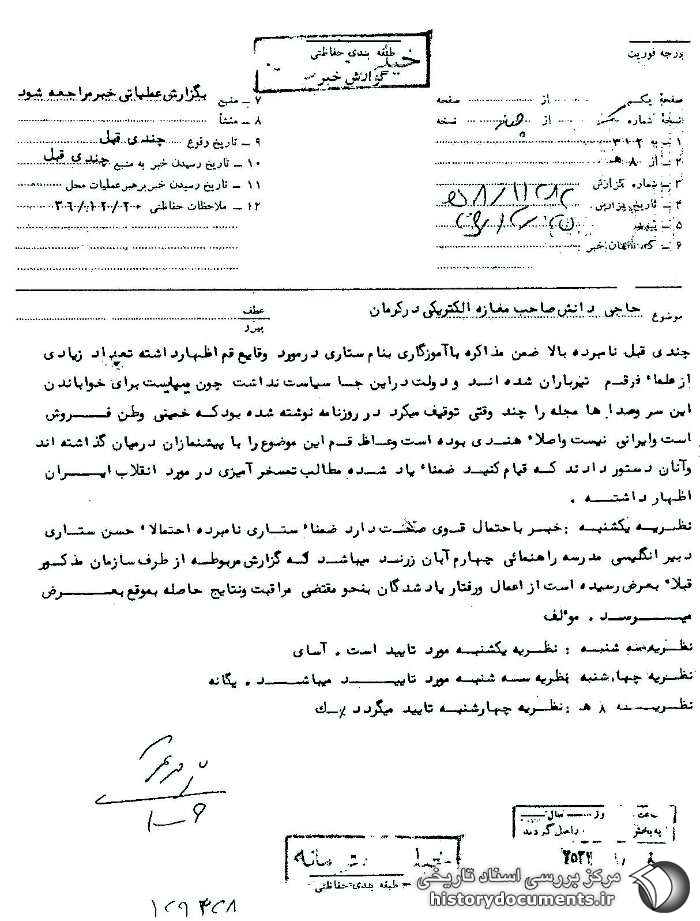 طبقه بندی حفاظتی
گزارش خبر
درجه فوریت
صفحهٔ یکم از صفحه
نسخهٔ شماره از نسخه
۱ – به ۳۱۲
۲ – از ۸ هـ
۳ – شماره گزارش
۴ – تاریخ گزارش
۵ –
۶ –
۷ – منبع بگزارش عملیاتی خبر مراجعه شود
۸ – منشأ
۹ – تاریخ وقوع چندی قبل
۱۰ – تاریخ رسیدن خبر به منبع چندی قبل
۱۱ – تاریخ رسیدن خبر برهبر عملیات محل
۱۲ – ملاحظات حفاظتی ۳۶/۱۲/۲۰
موضوع حاجی دانش صاحب مغازه الکتریکی در کرمان
عطف
پیرو
چندی قبل نامبرده بالا ضمن مذاکره با آموزگاری بنام ستاری در مورد وقایع قم اظهار داشته تعداد زیادی
از علماء در قم تیرباران شده اند و دولت در این جا سیاست نداشت چون میبایست برای خواباندن
این سر و صدا ها مجله را چند وقتی توقیف میکرد در روزنامه نوشته شده بود که خمینی وطن فروش
است و ایرانی نیست و اصلاً هندی بوده است و عاظ قم این موضوع را با پیشنمازان در میان گذاشته اند
و آنان دستور دادند که قیام کنید ضمناً یاد شده مطالب تمسخر آمیزی در مورد انقلاب ایران
اظهار داشته .
نظریه یکشنبه : خبر باحتمال قوی صحت دارد ضمناً ستاری نامبرده احتمالاً حسن ستاری
دبیر انگلیسی مدرسه راهنمائی چهارم آبان زرند میباشد که گزارش مربوطه از طرف سازمان مذکور
قبلاً بعرض رسیده است از اعمال و رفتار یاد شدگان بنحو مقتضی مراقبت و نتایج حاصله بموقع بعرض
میرسد . مولف
نظریه سه شنبه : نظریه یکشنبه مورد تایید است . آسای
نظریه چهارشنبه نظریه سه شنبه مورد تایید میباشد . یگانه
نظریه ۸ هـ : نظریه چهارشنبه تایید میگردد
ساعت روز سال
به بخش واصل گردید
طبقه بندی حفاظتی
مرکز بررسی اسناد تاریخی
historydocuments.ir